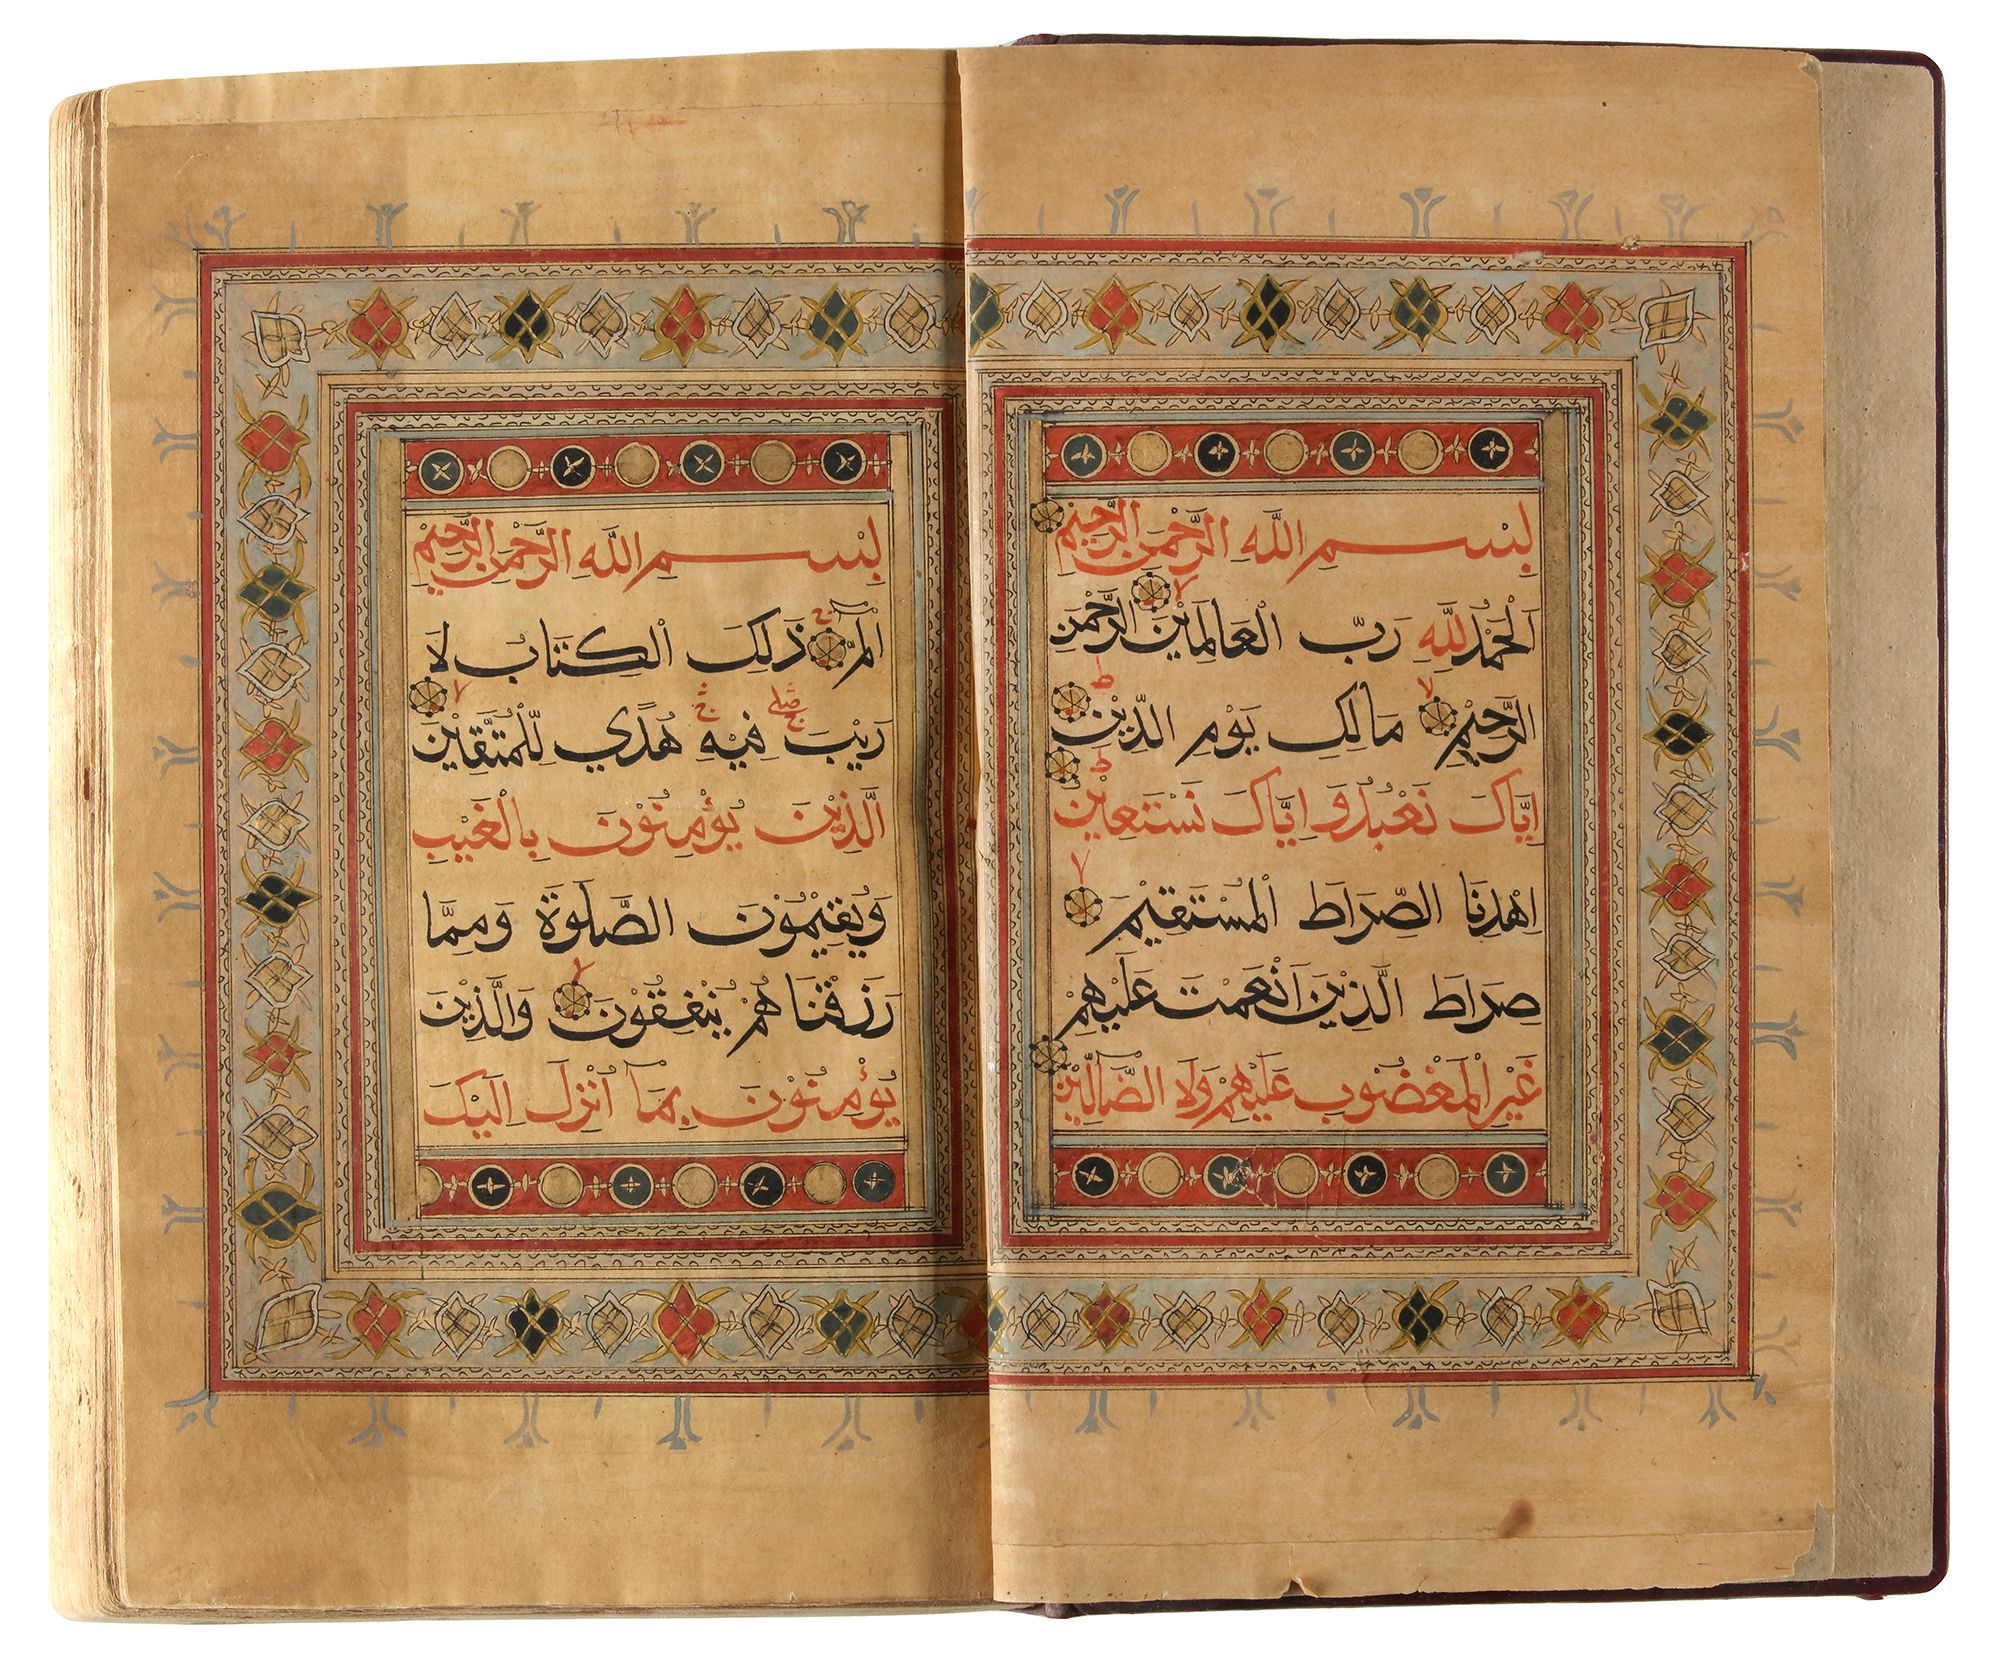 بِسْمِ اللّٰهِ الرَّحْمٰنِ الرَّحِيْمِ
اَلْحَمْدُ لِلّٰهِ رَبِّ الْعَالَمِيْنَ الرَّحْمٰنِ
الرَّحِيْمِ مَالِكِ يَوْمِ الدِّيْنِ
اِيَّاكَ نَعْبُدُ وَاِيَّاكَ نَسْتَعِيْنُ
اِهْدِنَا الصِّرَاطَ الْمُسْتَقِيْمَ
صِرَاطَ الَّذِيْنَ اَنْعَمْتَ عَلَيْهِمْ
غَيْرِ الْمَغْضُوْبِ عَلَيْهِمْ وَلَا الضَّآلِّيْنَ
بِسْمِ اللّٰهِ الرَّحْمٰنِ الرَّحِيْمِ
الٓمّٓ ذٰلِكَ الْكِتَابُ لَا
رَيْبَ فِيْهِ هُدًي لِّلْمُتَّقِيْنَ
الَّذِيْنَ يُؤْمِنُوْنَ بِالْغَيْبِ
وَيُقِيْمُوْنَ الصَّلٰوةَ وَمِمَّا
رَزَقْنَاهُمْ يُنْفِقُوْنَ وَالَّذِيْنَ
يُؤْمِنُوْنَ بِمَآ اُنْزِلَ اِلَيْكَ